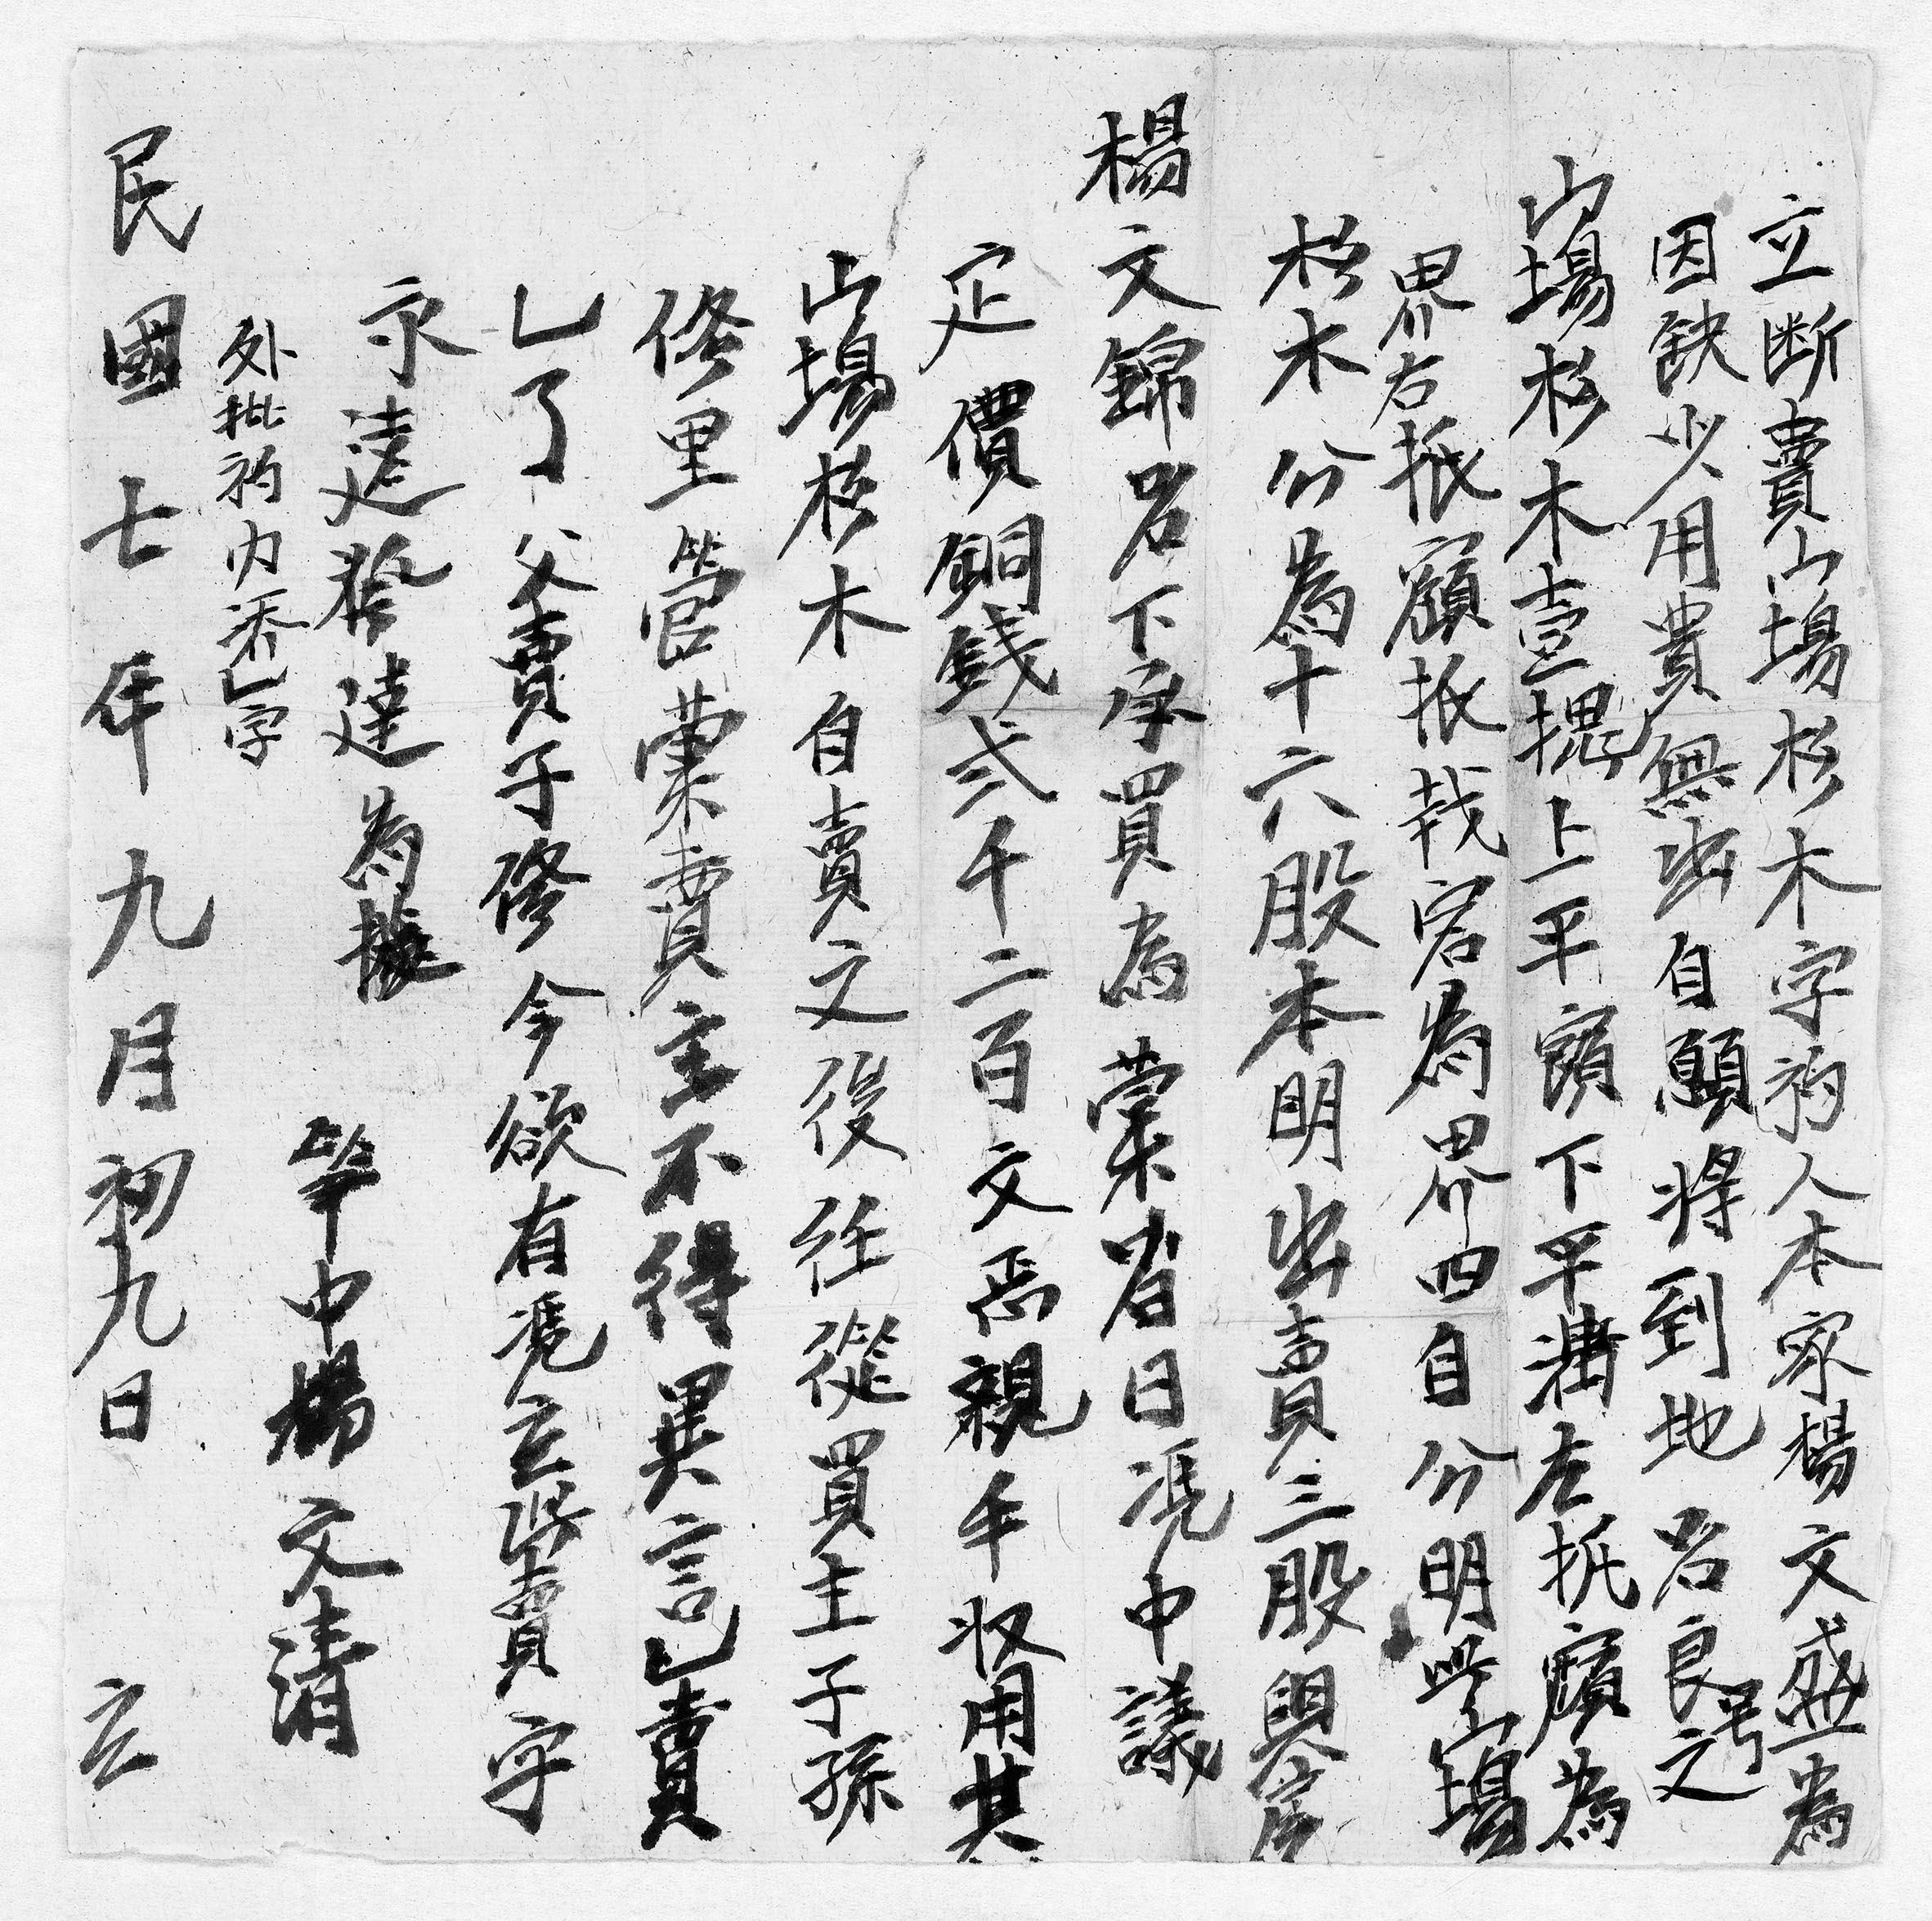 立断賣山場杉木字約人本家楊文盛為
因缺少用費無出自願將到地名良号之
山場杉木壹塊上平嶺下平溝左抵嶺為
界右抵嶺抵栽宕為界四自分明此山場
杉木份為十六股本明出賣三股與房
楊文錦名下承買為業省日憑中議
定價銅錢弍千二百文恁親手收用其
山場杉木自賣之後任從買主子孫
修里管業賣主不得異言乚賣
乚了父賣子修今欲有憑立此賣字
永遠發達為據
外批約內添乚字
筆中楊文清
民國七年九月初九日 立